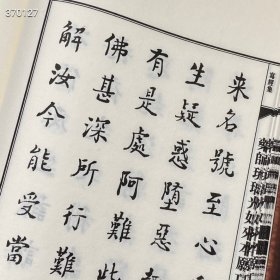 370127
来名號至心
生疑惑墮惡
有是處阿難
佛甚深所行難
解汝今能受當